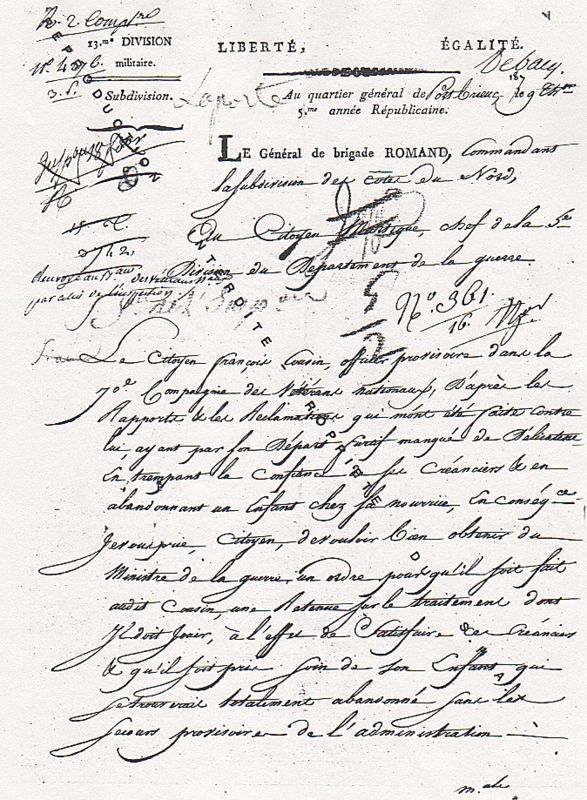 13.me DIVISION
militaire.
Subdivision.
LIBERTÉ, ÉGALITÉ.
Laporte
Au quartier général de Port Brieuc, le 9
5.me année Républicaine.
LE Général de brigade ROMAND, Commandant
la subdivision des côtes du Nord,
Au Citoyen chef de la 5e
Division du Département de la guerre
N.o 361
16.
Le Citoyen françois Cousin, officier provisoire dans la
70e Compagnie des Vétérans nationaux, D'après les
Rapports & les Réclamations qui mont été faite contre
lui ayant par son Départ furtif manqué de Délicatesse
En trempant la Confiance de ses Créanciers & en
abandonnant un Enfant chez sa nourrice, En conséqce
Je vous prie, Citoyen, de vouloir bien obtenir du
Ministre de la guerre, un ordre pour qu'il soit fait
audit Cousin, une Retenue sur le traitement dont
Il doit Jouir, à l'effet de Satisfaire ses Créanciers
& qu'il soit pris soin de son Enfant qui
se trouverait totalement abandonné sans les
secours provisoires de l'administration
m.ale